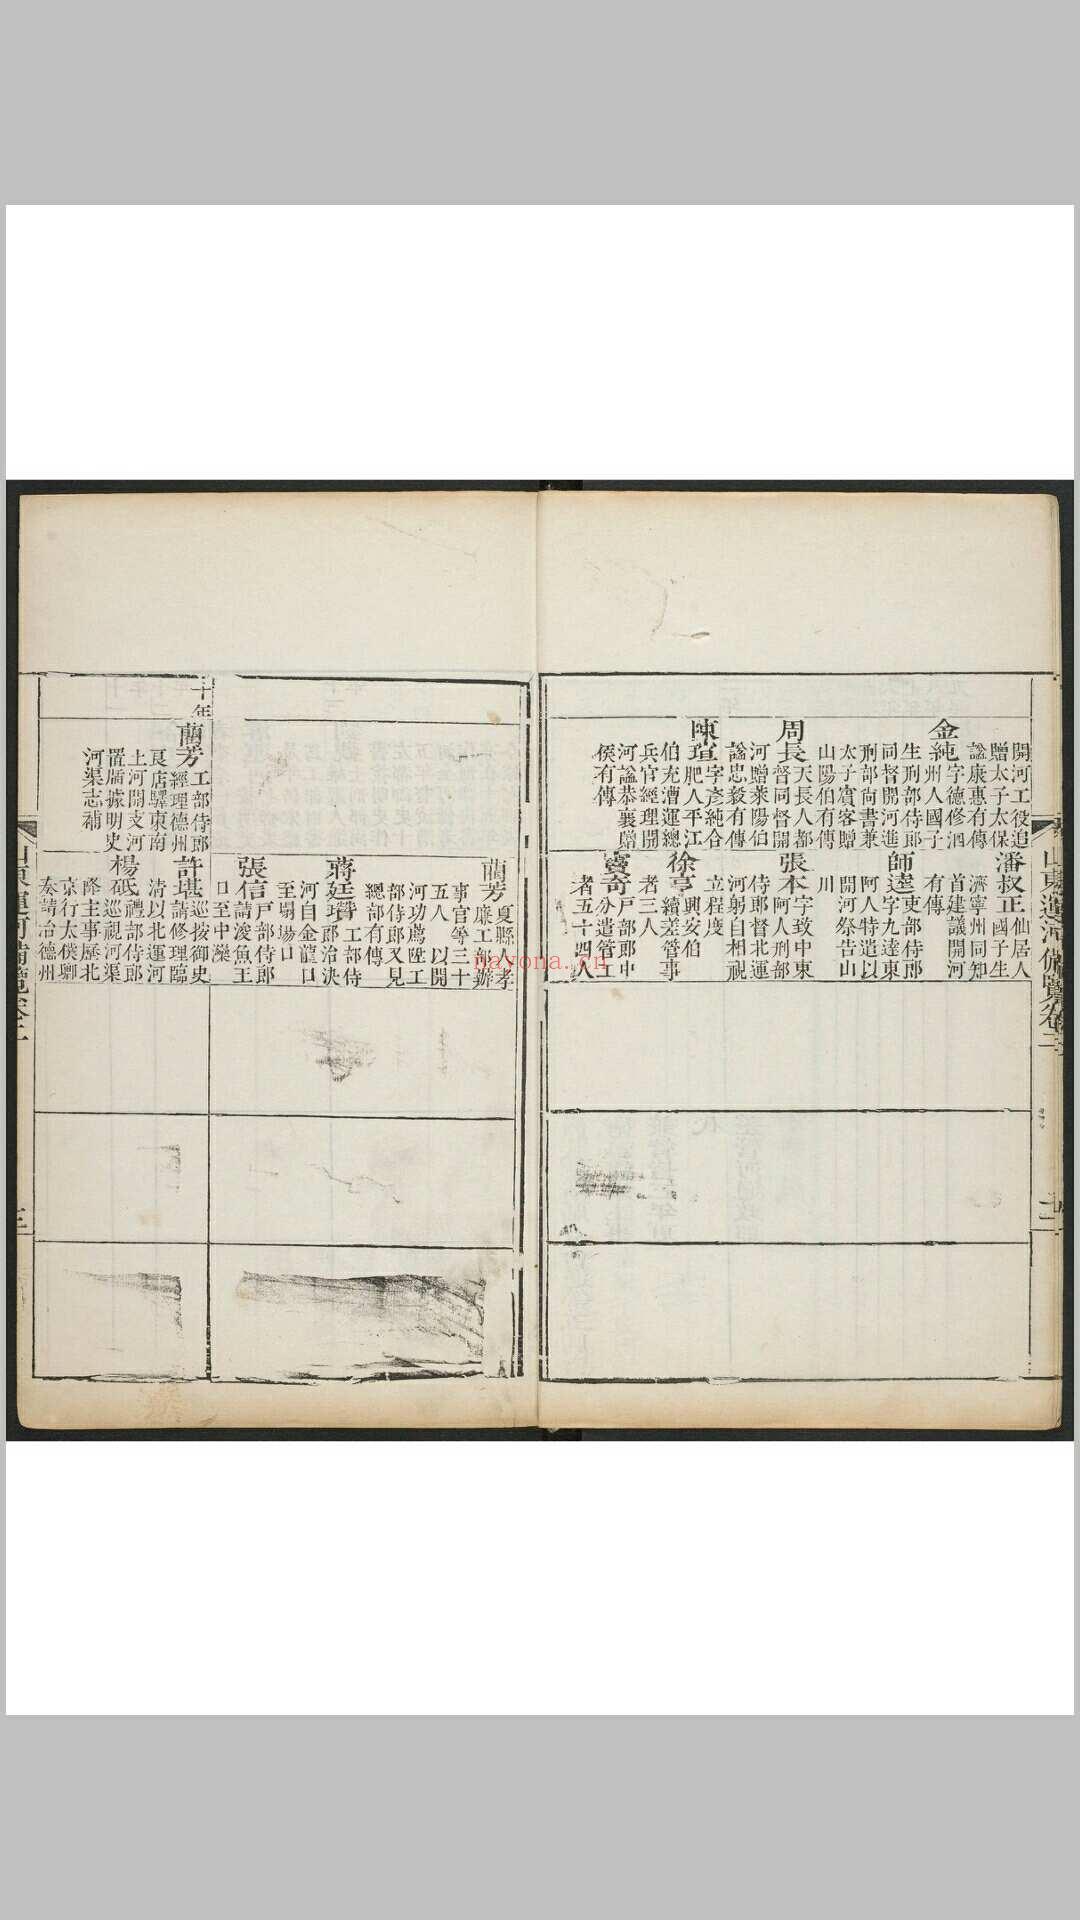 開河工役追
贈太子太保
謚康惠有傳
金純字德修泗
州人國子
生刑部侍郎
同督開河進
刑部尚書兼
太子賓客贈
山陽伯有傳
周長天長人都
督同督開
河贈萊陽伯
謚忠毅有傳
陳瑄字彥純合
肥人平江
伯充漕運總
兵官經理開
河謚恭襄贈
侯有傳
潘叔正仙居人
國子生
濟寧州同知
首建議開河
有傳
師逵字九達東
阿人特遣以
吏部侍郎
開河祭告山
川
張本字致中東
阿人刑部
侍郎督北運
河躬自相視
立程度
徐亨興安伯
續差管事
者三人
竇奇戶部郎中
分遣管工
者五十四人
山東運河備覽卷二
藺芳夏縣人孝
廉工部辦
事官等三十
五人以開
河功薦陞工
部侍郎又見
總部有傳
蔣廷瓚工部侍
郎治決
河自金龍口
至塌場口
張信戶部侍郎
請浚魚王
口至中灤
十年
藺芳工部侍郎
經理德州
良店驛東南
土河開支河
置牐據明史
河渠志補
許堪巡按御史
請修理臨
清以北運河
楊砥禮部侍郎
巡視河渠
降主事歷北
京行太僕卿
奏請治德州
山東運河備覽卷二